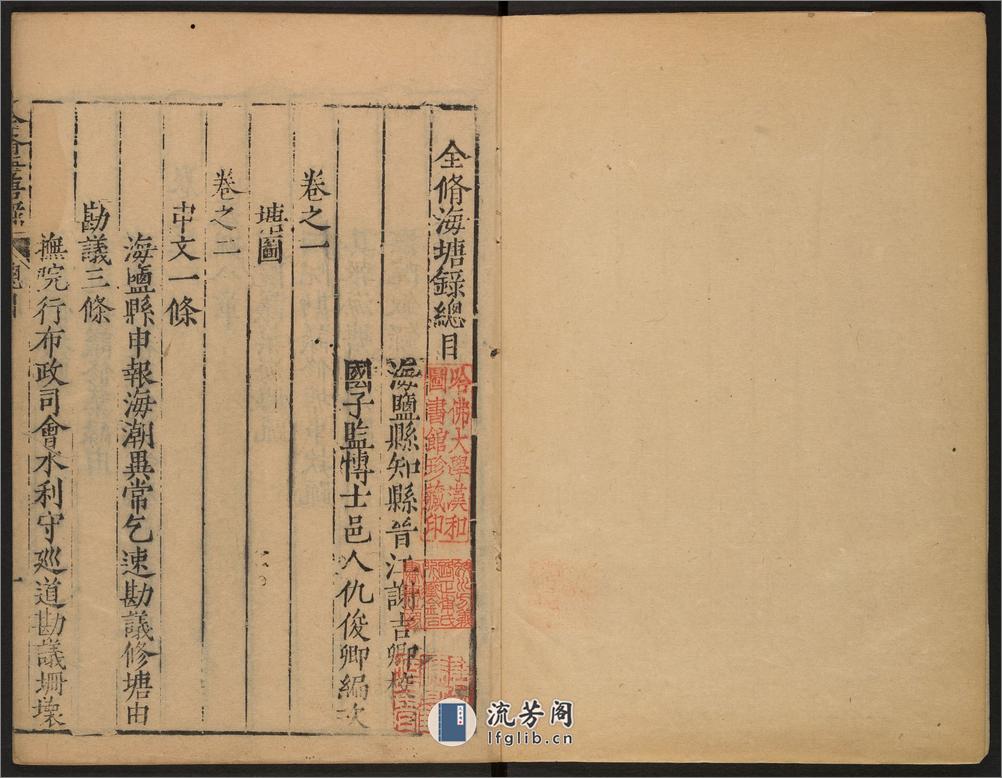 全脩海塘錄總目
海鹽縣知縣晉江謝吉卿
國子監博士邑人仇俊卿編次
卷之一
塘圖
卷之二
申文一條
海鹽縣申報海潮異常乞速勘議修塘由
勘議三條
撫院行布政司會水利守巡道勘議坍壞
哈佛大學漢和
圖書館珍藏印
流芳阁
lfglib.cn